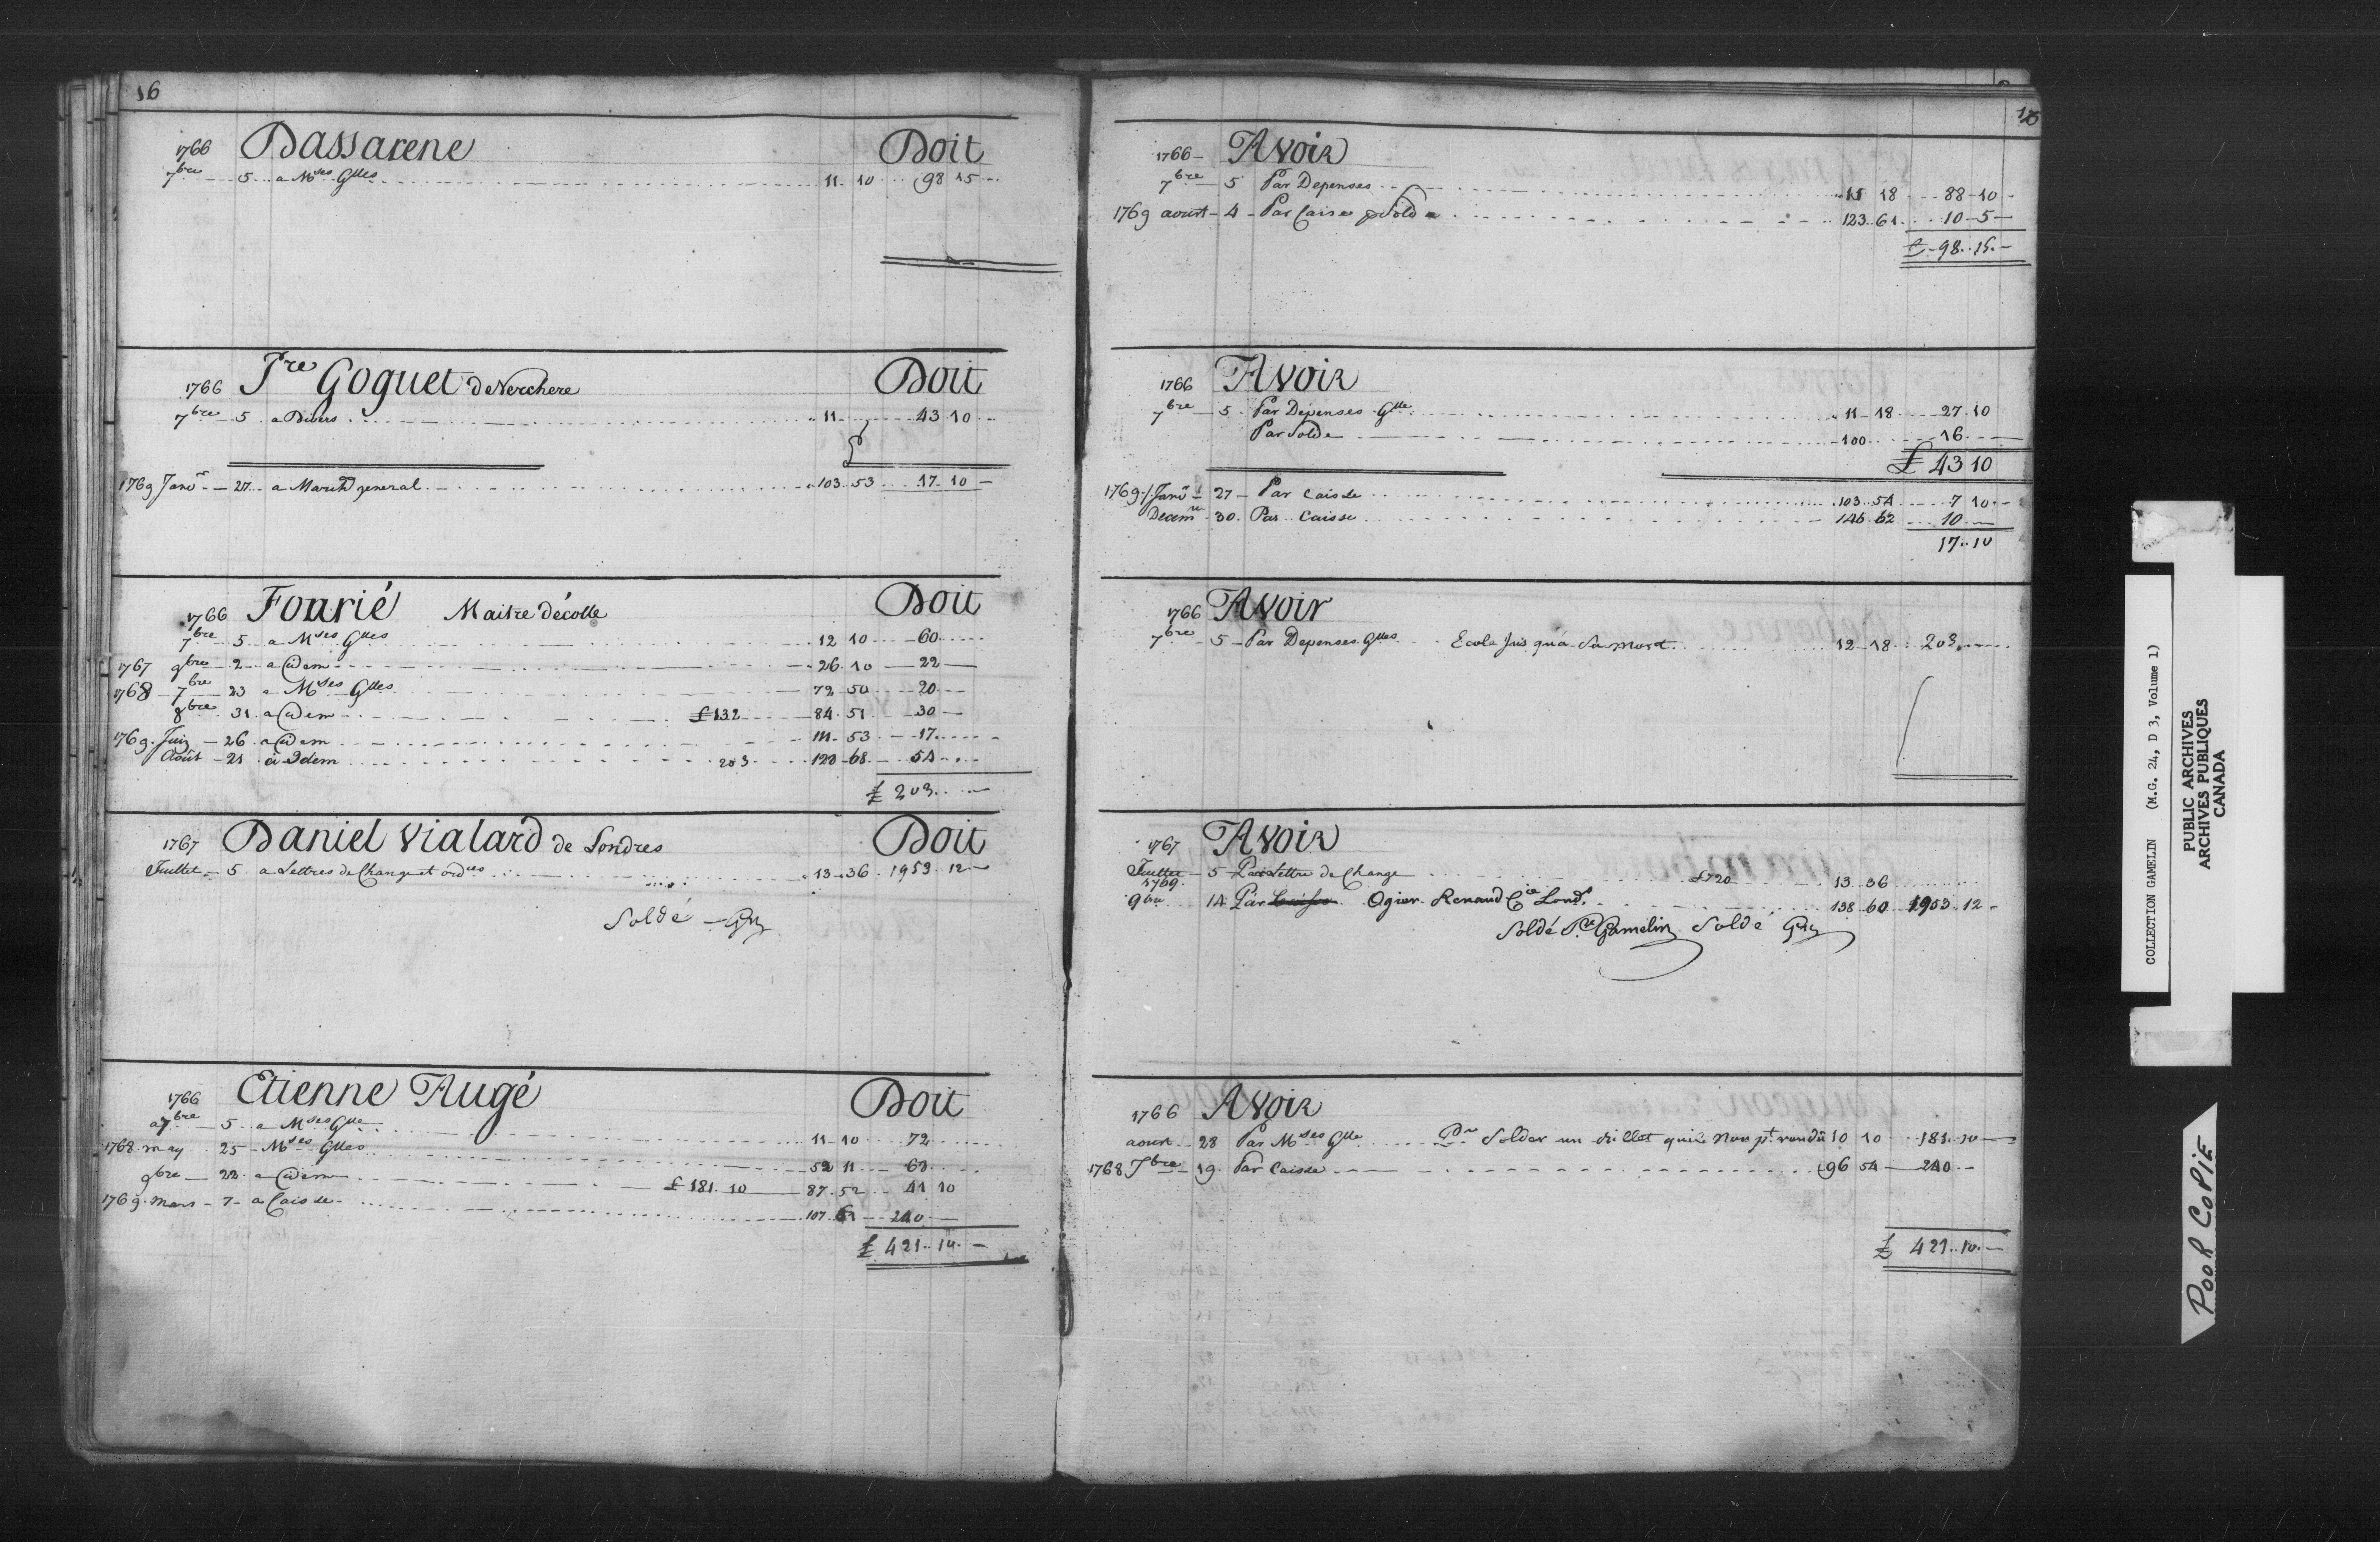 16
1766 Dassarene Doit
7bre 5 a Mses Glles 11 10 98 15
Pre Goguet de Verchere Doit
1766
7bre 5 a Divers 11 43 10
1769 Janvr 27 a Marchd general 103 53 17 10
1766 Fourié Maitre décolle Doit
7bre 5 a Mses Glles 12 10 60
1767 9bre 2 a Idem 26 10 22
1768 7bre 23 a Mses Glles 72 50 20
8bre 31 a Idem £ 132 84 51 30
1769 Juin 26 a Idem 111 53 17
Août 21 à Idem 203 123 68 54
£ 203
1767 Daniel Vialard de Londres Doit
Juillet 5 a Lettres de Change et ordres 13 36 1953 12
Soldé
1766 Etienne Augé Doit
7bre 5 a Mses Glle 11 10 72
1768 may 25 Mses Glles 52 11 68
9bre 22 a Idem £ 181 10 87 52 41 10
1769 mars 7 a Caisse 107 61 240
£ 421 10
1766 Avoir
7bre 5 Par Depenses 15 18 88 10
1769 aoust 4 Par Caisse p Solde 123 61 10 5
£ 98 15
1766 Avoir
7bre 5 Par Depenses Glle 11 18 27 10
Par Solde 100 16
£ 43 10
1769 Janvr 27 Par Caisse 103 54 7 10
Decemre 30 Par Caisse 146 62 10
17 10
1766 Avoir
7bre 5 Par Depenses Glles Ecole Jus qu'a Sa mort 12 18 203
1767 Avoir
Juillet 5 Par Lettre de Change £720 13 36
1769
9bre 14 Par Caisse Ogier Renaud Cie Lond. 138 60 1953 12
Soldé Pre Gamelin Soldé
1766 Avoir
aoust 28 Par Mses Glle Pr Solder un billet quil Nou pt rendü 10 10 181 10
1768 7bre 19 Par Caisse 96 54 240
£ 421 10
COLLECTION GAMELIN (M.G. 24, D 3, Volume 1)
PUBLIC ARCHIVES
ARCHIVES PUBLIQUES
CANADA
POOR COPIE